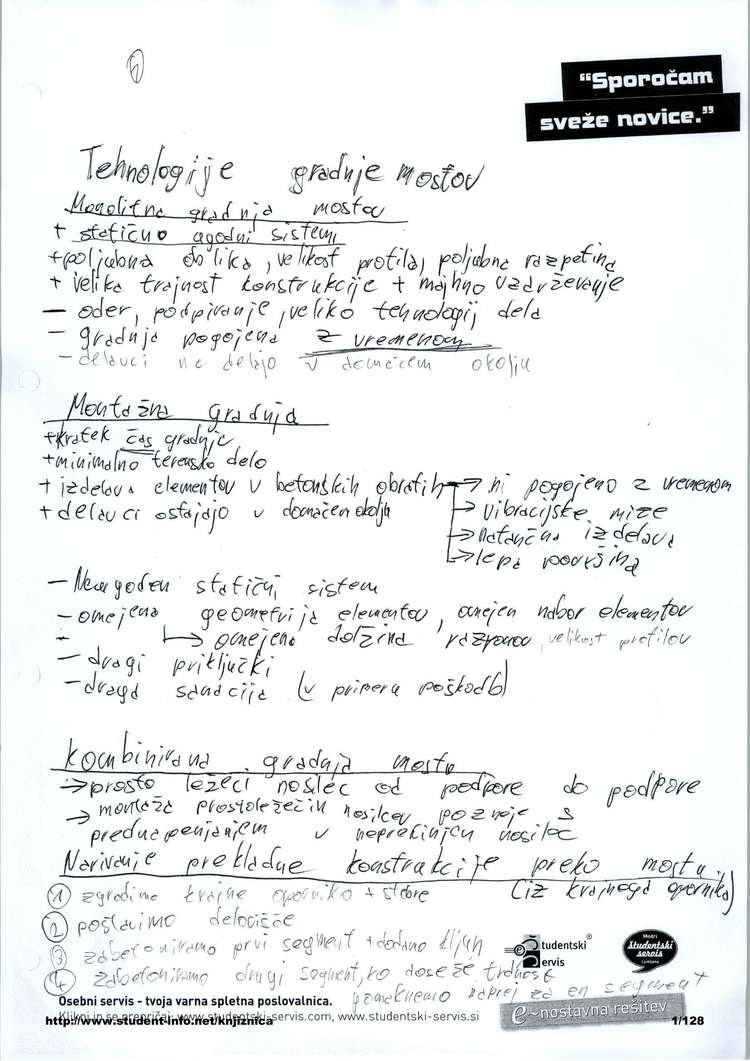 "Sporočam
sveže novice."
Tehnologije gradnje mostov
Monolitna gradnja mostov
+ statično ugodni sistemi
+ poljubna oblika, velikost profila, poljubna razpetina
+ velika trajnost konstrukcije + majhno vzdrževanje
- oder, podpiranje, veliko tehnologij dela
- gradnja pogojena z vremenom
- delavci ne delajo v domačem okolju
Montažna gradnja
+ kratek čas gradnje
+ minimalno terensko delo
+ izdelava elementov v betonskih obratih → ni pogojeno z vremenom
+ delavci ostajajo v domačem okolju → vibracijske mize
→ natančna izdelava
→ lepa površina
- Neugoden statični sistem
- omejena geometrija elementov, omejen nabor elementov
- ↳ omejena dolžina razponov, velikost profilov
- dragi priključki
- draga sanacija (v primeru poškodb)
Kombinirana gradnja mostu
→ prosto ležeči nosilec od podpore do podpore
→ montaža prostoležečih nosilcev pozneje s
prednapenjanjem v neprekinjen nosilec
Narivanje prekladne konstrukcije preko mostu
(iz krajnega opornika)
1 zgradimo krajne opornike + stebre
2 postavimo delovišče
3 zabetoniramo prvi segment + dodamo kljun
4 zabetoniramo drugi segment, ko doseže trdnost
pomaknemo naprej za en segment
Študentski Servis®
Modri
študentski
servis
Ljubljana
Osebni servis - tvoja varna spletna poslovalnica.
Klikni in se prepričaj: www.studentski-servis.com, www.studentski-servis.si
http://www.student-info.net/knjiznica
e-nostavna rešitev
1/128